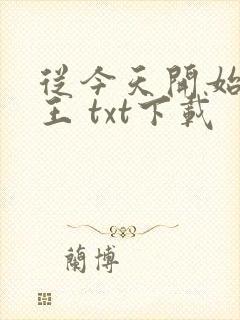 從今天開始
王 txt下載
蘭博